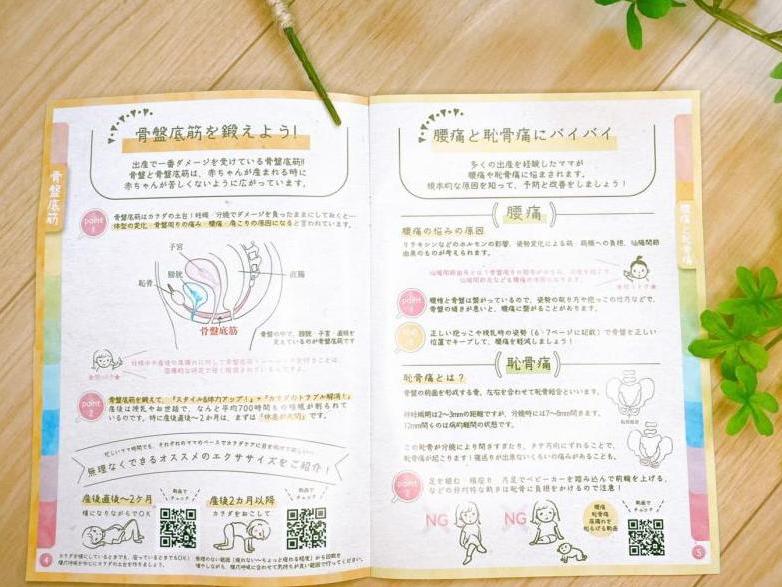 骨盤底筋を鍛えよう!
出産で一番ダメージを受けている骨盤底筋!!
骨盤と骨盤底筋は、赤ちゃんが産まれる時に
赤ちゃんが苦しくないように広がっています。
骨盤底筋
point
1
骨盤底筋はカラダの土台!妊娠・分娩でダメージを負ったままにしておくと…
体型の変化・骨盤周りの痛み・腰痛・肩こりの原因になると言われています。
子宮
膀胱
直腸
恥骨
骨盤底筋
骨盤の中で、膀胱・子宮・直腸を
支えているのが骨盤底筋です
point
2
骨盤底筋を鍛えて、「スタイル&体力アップ!」+「カラダのトラブル解消!」
産後は授乳やお世話で、なんと平均700時間もの睡眠が削られて
いるのです。特に産後直後〜2か月は、まずは「休息が大切」です。
忙しいママ時間でも、それぞれのママのペースでカラダケアに目を向けて欲しい…
無理なくできるオススメのエクササイズをご紹介!
産後直後〜2ケ月
横になりながらでOK
動画で
チェック
産後2カ月以降
カラダをおこして
動画で
チェック
4
腰痛と恥骨痛にバイバイ
多くの出産を経験したママが
腰痛や恥骨痛に悩まされます。
根本的な原因を知って、予防と改善をしましょう!
腰痛と恥骨痛
腰痛
腰痛の悩みの原因
リラキシンなどのホルモンの影響、姿勢変化による筋・筋膜への負担、仙腸関節
由来のものが考えられます。
point
1
腰椎と骨盤は繋がっているので、姿勢の取り方や抱っこの仕方などで、
骨盤の傾きが悪いと、腰痛に繋がることがあります。
正しい抱っこや授乳時の姿勢(6・7ページに記載)で骨盤を正しい
位置でキープして、腰痛を軽減しましょう!
恥骨痛
恥骨痛とは?
骨盤の前面を形成する骨、左右を合わせて恥骨結合といいます。
非妊娠期は2〜3mmの距離ですが、分娩時には7〜8mm開きます。
12mm開くのは病的離開の状態です。
この恥骨が分娩により開きすぎたり、タテ方向にずれることで、
恥骨痛が起こります!寝返りが出来ないくらいの痛みがあることも。
足を組む・横座り・片足でベビーカーを踏み込んで前輪を上げる、
などの分対的な動きは恥骨に負担をかけるので注意!
NG
NG
腰痛
恥骨痛
産後痛を
和らげる動画
動画で
チェック
5